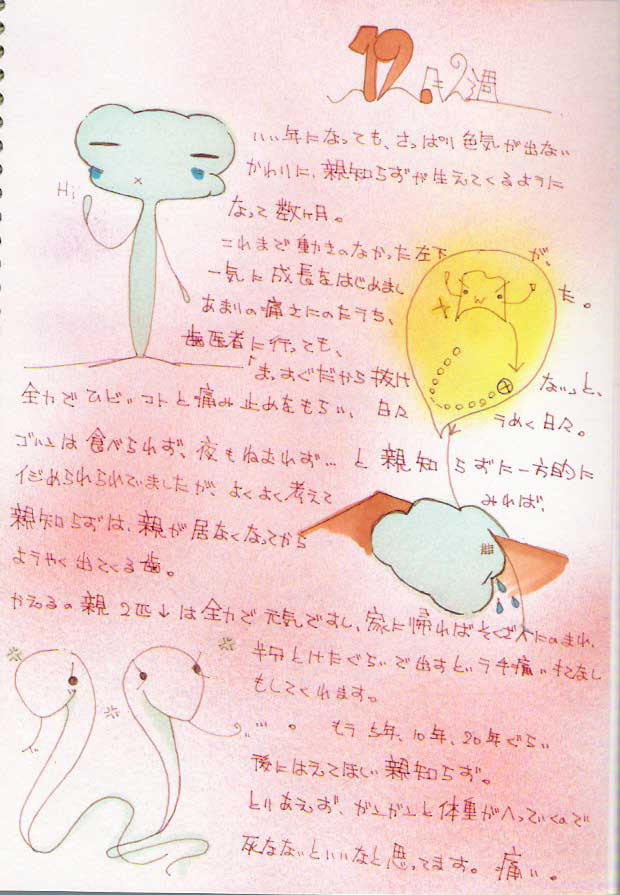 12.月2週
いい年になっても、さっぱり色気が出ない
Hi
かわりに、親知らずが生えてくるように
なって数ヶ月。
これまで動きのなかった左下が、
一気に成長をはじめました。
あまりの痛さにのたうち、
歯医者に行っても、
「まっすぐだから抜けないっ」と、
全力でヒドいコトと痛み止めをもらい、日々うめく日々。
ゴハンは食べられず、夜もねむれず…と親知らずに一方的に
イジめられられていましたが、よくよく考えてみれば、
親知らずは、親が居なくなってから
ようやく出てくる歯。
かえるの親2匹↓は全力で元気ですし、家に帰れば
半分とけたぐらいで出すという手痛いもてなし
もしてくれます。
もう5年、10年、20年ぐらい
後にはえてほしい親知らず。
とりあえず、ガンガンと体重がへっていくので
死なないといいなと思ってます。痛い。